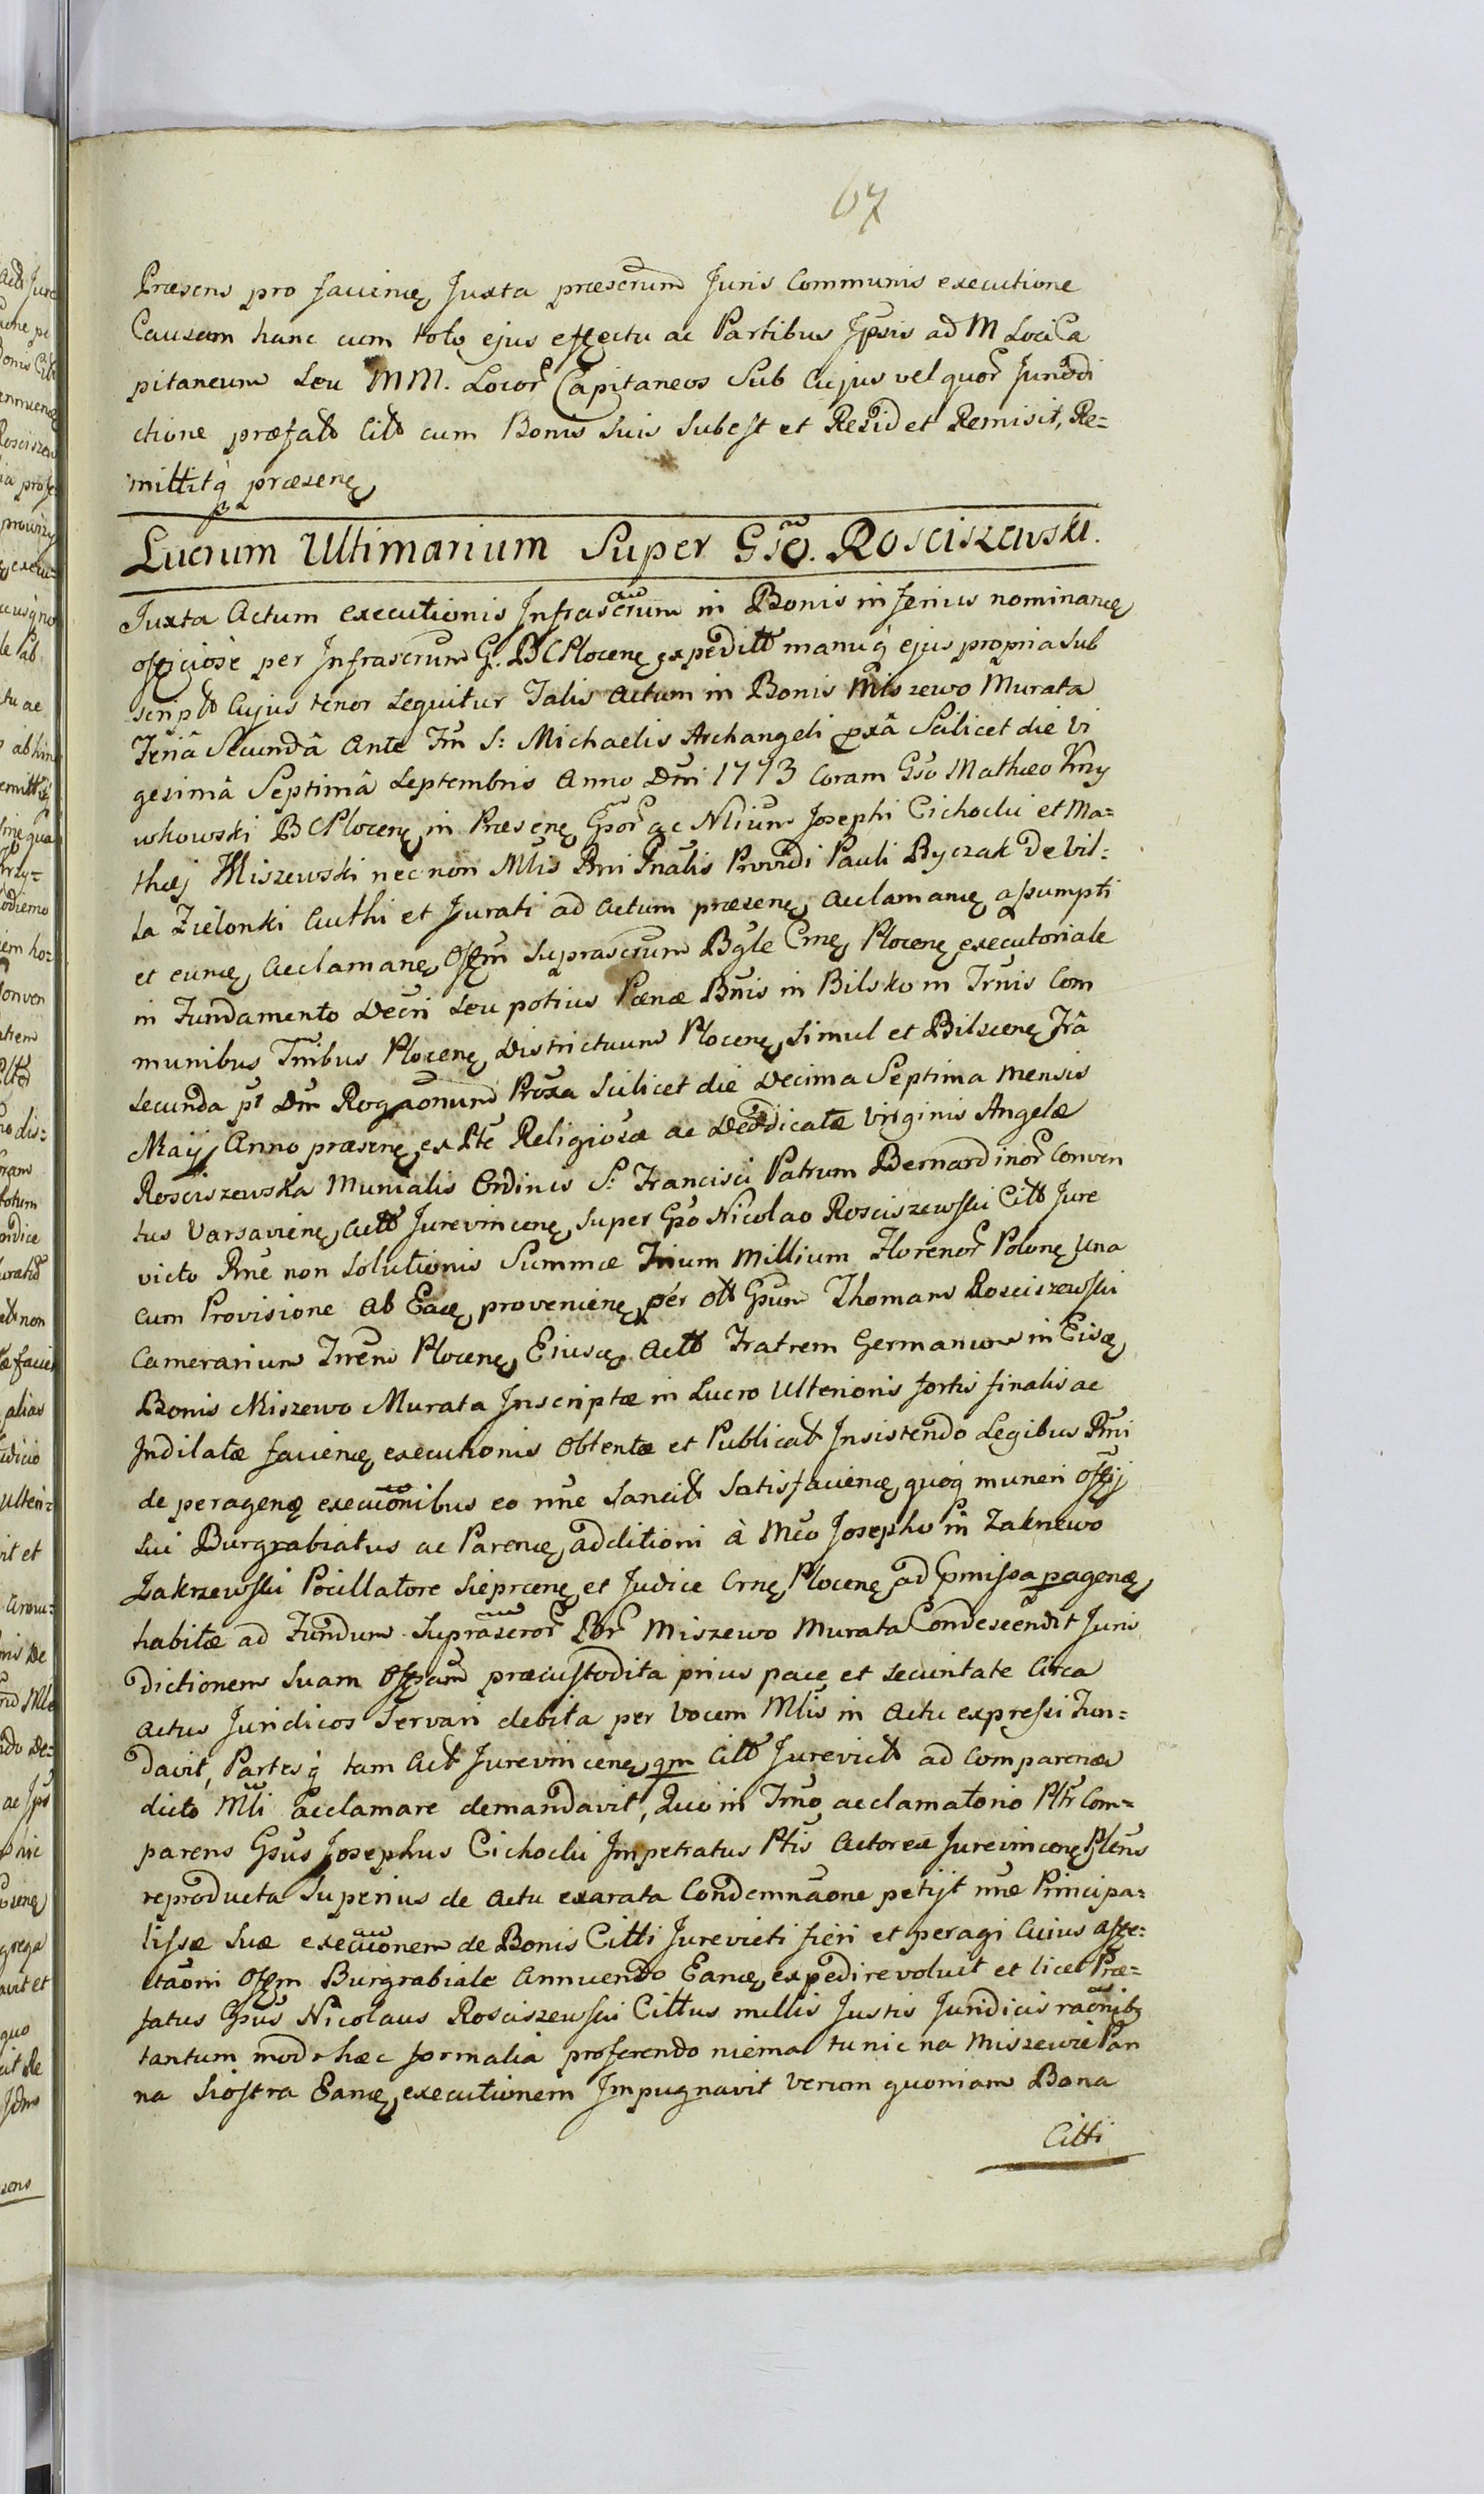 67
Præsens pro facienę Juxta præscrum Juris Communis executione
Causam hanc cum toto ejus effectu ac Partibus Ipsis ad M Loci Ca
pitaneum seu MM. Locor Capitaneos Sub Cujus vel quor Jurisdi
ctione præfatt Citt cum Bonis suis subest et Resid et Remisit, Re=
mittitq præsenę
Lucrum Ultimarium Super Gso. Rosciszewski.
Juxta Actum executionis Infrascrum in Bonis inferius nominanę
officiose per Infrascrum G. BC Plocenę expeditt manuq ejus propria sub
script Cujus tenor sequitur Talis Actum in Bonis Miszewo Murata
Feria Secundâ Ante Fm S: Michaelis Archangeli pxâ Scilicet die Vi
gesimâ Septimâ Septembris Anno Dni 1773 Coram Gso Mathæo Krzy
wkowski BC Plocenę in Præsenę Gsor ac Nlium Josephi Cichocki et Ma=
thæj Miszewski nec non Mlis Rni Gnalis Providi Pauli Byczak De Vil=
la Zielonki Authi et Jurati ad Actum præsenę acclamanę assumpti
et eunę acclamanę Offm Suprascrum Bgle Crnę Plocenę executoriale
in Fundamento Decri seu potius Pœnæ Bnis in Bilsko in Trnis Com
munibus Tnibus Plocenę Districtuum Plocenę simul et Bilscenę Frâ
secunda pt Dm Rogaonum Proxa scilicet die Decima Septima mensis
Maij Anno præsenę ex Pte Religiosæ ac Deodicatæ Virginis Angelæ
Rosciszewska Munialis Ordinis S: Francisci Patrum Bernardinor Conven
tus Varsavienę Actt Jurevincenę super Gso Nicolao Rosciszewski Citt Jure
victo Rne non solutionis Summæ Trium Millium Florenor Polonę una
cum Provisione ab Eaę provenienę per ott Gsum Thomam Rosciszewski
Camerarium Trrem Plocenę Eiusę Actt Fratrem Germanum in Eisę
Bonis Miszewo Murata Inscriptæ in Lucro Ulterioris fortis finalis ac
Indilatæ facienę executionis obtentæ et Publicatt Insistendo Legibus Rni
de peragenę execuōnibus eo nne sancitt satisfacienę quoq muneri Offij
sui Burgrabiatus ac Parenę additioni à Mco Josepho in Zakrzewo
Zakrzewski Pocillatore Sieprcenę et Judice Crnę Plocenę ad præmissa pagenę
habitæ ad Fundum Suprascror Bor Miszewo Murata Condescendit Juris
dictionem suam Offam præcustodita prius pace et securitate Circa
actus Juridicos servari debita per vocem Mlis in Actu expressi Fun=
davit, Partesq tam Act Jurevincenę qm Citt Jurevict ad Comparenæ
dicto Mli acclamare demandavit, Quo in Trno acclamatorio Pltr Com=
parens Gsus Josephus Cichocki Impetratus Ptis Actoreæ Jurevincenę Plens
reproducta superius de actu exarata Condemnāone petijt nne Principa=
lissæ suæ execuōonem de Bonis Citti Jurevicti fieri et peragi Cuius affe=
ctaōni Offm Burgrabiale Annuendo Eanę expedire voluit et licet Præ=
fatus Gsus Nicolaus Rosciszewski Cittus nullis Justis Juridicis raōnibq
tantum modo hæc formalia proferendo niema tu nic na Miszewie Pan
na Siostra Eanę executionem Impugnavit verum quoniam Bona
Citti